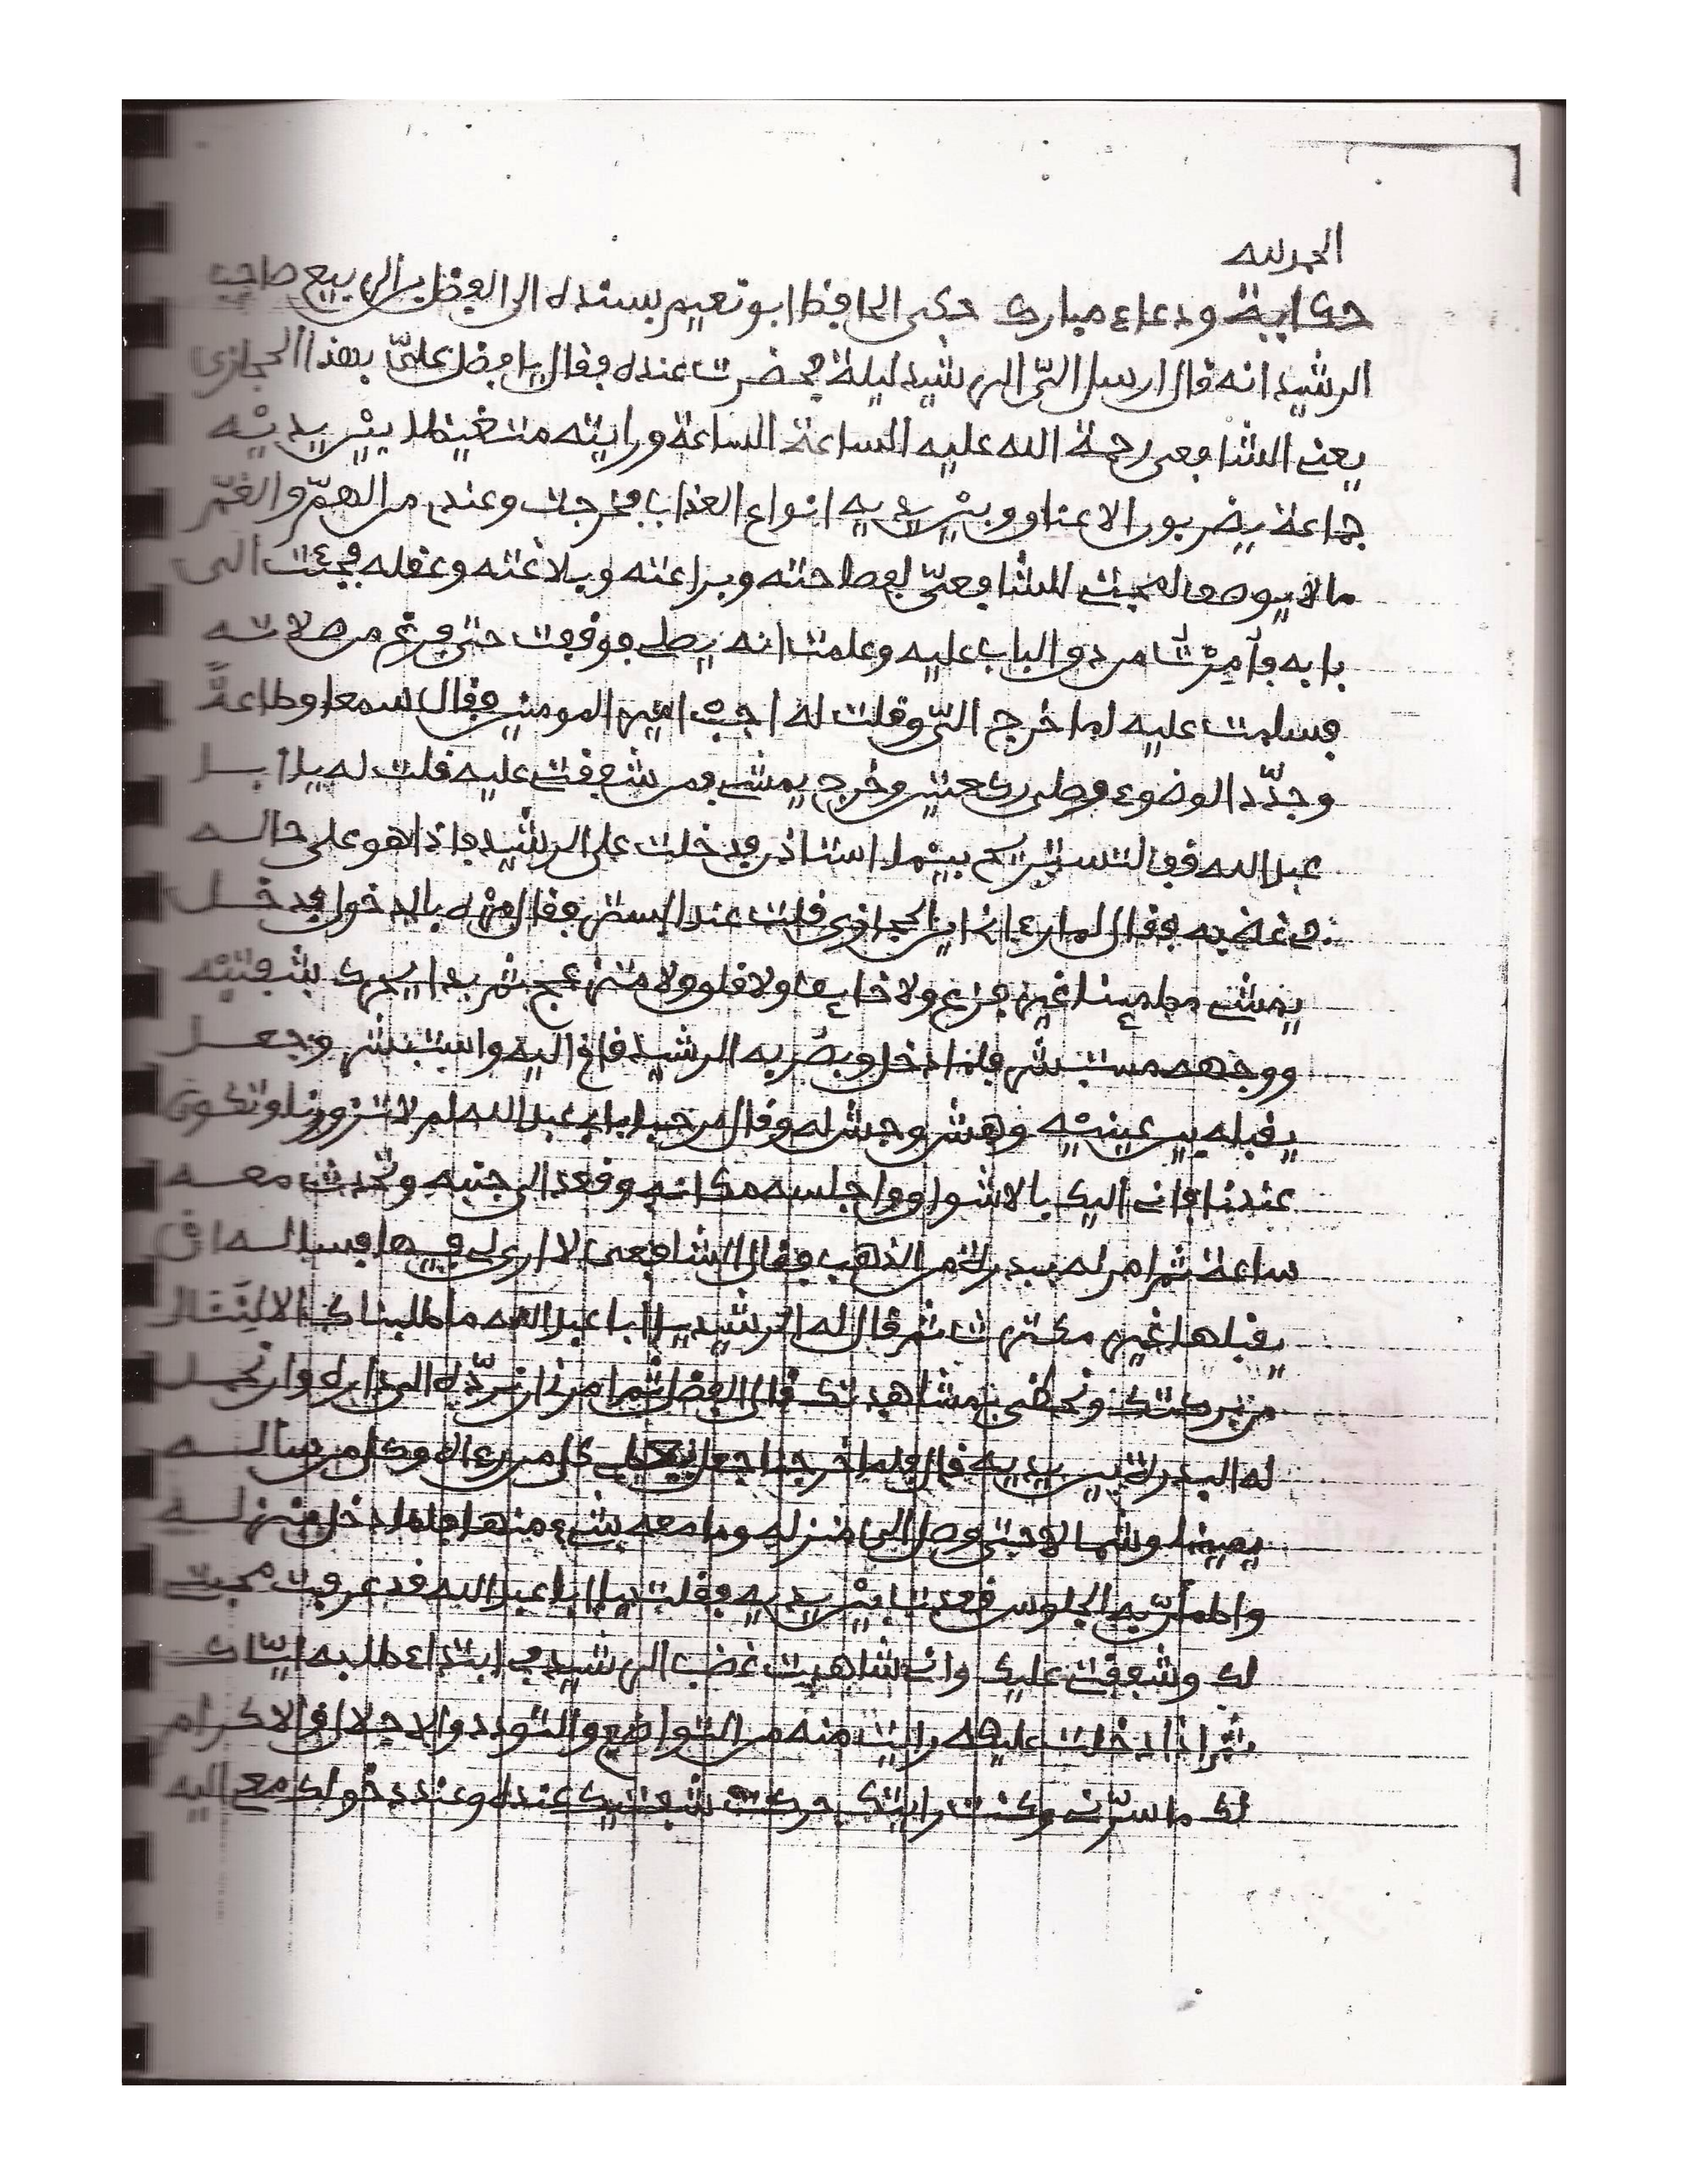 الحمد لله
حكاية ودعاء مبارك حكى الحافظ ابو نعيم بسنده الى الفضل بن الربيع صاحب
الرشيد انه قال ارسل اليّ الرشيد ليلة فحضرت عنده فقال يا فضل عليّ بهذا الحجازي
يعني الشافعي رحمة الله عليه الساعة الساعة ورايته متغيظا بين يديه
جماعة يضربون الاعناق وبين يديه انواع العذاب فخرجت وعندي من الهمّ والغمّ
ما لا يوصف لمحبتي للشافعيّ لفصاحته وبراعته وبلاغته وعقله فجئت الى
بابه فأمرت من دق الباب عليه وعلمت انه يصلي فوقفت حتى فرغ من صلاته
فسلمت عليه لما خرج اليّ وقلت له اجب امير المومنين فقال سمعا وطاعة
وجدّد الوضوء وصلى ركعتين وخرج يمشي فمن شفقتي عليه قلت له يا ابا
عبد الله قف لتستريح بينما استاذن فدخلت على الرشيد فاذا هو على حاله
في غضبه فقال لما رءاني اين الحجازي قلت عند الستر فقال مره بالدخول فدخل
يمشي مطمئنا غير فزع ولا خايف ولا قلق ولا منزعج ثم بدا يحرك شفتيه
ووجهه مستبشر فلما دخل وبصر به الرشيد قام اليه واستبشر وجعل
يقبله بين عينيه وهش وبش له وقال مرحبا بابي عبد الله لم لا تزورنا وتكون
عندنا فاني اليك بالاشواق واجلسه مكانه وقعد الى جنبه وتحدث معه
ساعة ثم امر له ببدرة من الذهب فقال الشافعي لا ارب لي فيها فساله ان
يقبلها غير مكترث ثم قال له الرشيد يا ابا عبد الله ما طلبناك الا لننال
من بركتك ونحظى بمشاهدتك قال الفضل ثم امرني ان نردّه الى داره وان نحمل
له البدرة بين يديه قال فلما خرجنا جعل يعطي كل من رءاه وكل من ساله
يمينا وشمالا حتى وصل الى منزله وما معه شيء منها فلما دخل منزله
واطمأنّ به الجلوس قعدت بين يديه فقلت يا ابا عبد الله قد عرفت محبتي
لك وشفقتي عليك واني شاهدت غضب الرشيد في ابتداء طلبه اياك
ثم اذا دخلت عليه رايت منه من التواضع والتودد والاجلال والاكرام
لك ما سرّني وكنت رايتك حركت شفتيك عنده وعند دخولك معي اليه